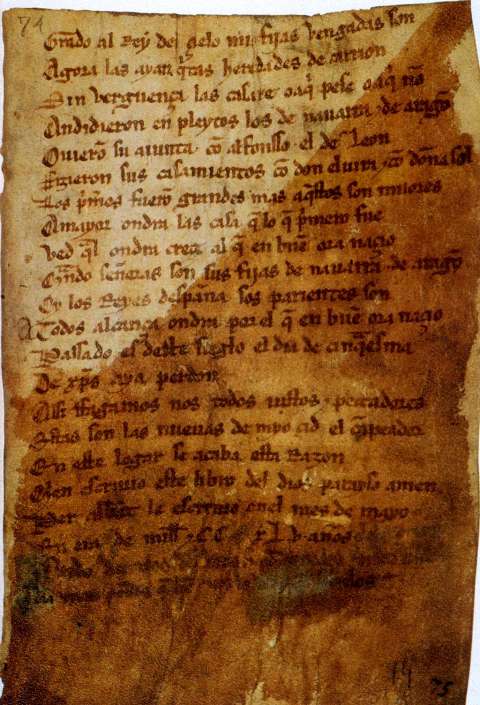 74
Grado al Rey del çielo mis fijas vengadas son
Agora las ayan q̃tas heredades de carrion
Sin verguença las casare o aq̃ pese o aq̃ nõ
Andidieron en pleytos los de nauarra ⁊ de aragõ
Ouierõ su aiunta cõ alfonsso el de Leon
ffizieron sus casamientos cõ don eluira ⁊ cõ doña sol
Los p̃meros fuerõ grandes mas aq̃stos son miiores
A mayor ondra las casa q̃ lo q̃ p̃mero fue
Ved q̃l ondra creçe al q̃ en buẽ ora naçio
Quãdo señoras son sus fijas de nauarra ⁊ de aragõ
Oy los Reyes despaña sos parientes son
A Todos alcança ondra por el q̃ en buẽ ora naçio
Passado es deste sieglo el dia de cinq̃esma
De xp̃s aya perdon
Assi ffagamos nos todos iustos ⁊ peccadores
Estas son las nueuas de myo çid el cãpeador
En este logar se acaba esta Razon
Quien escriuio este libro del dios parayso amen
Per abbat le escriuio enel mes de mayo
En era de mill ⁊ CC xLv años
14
75